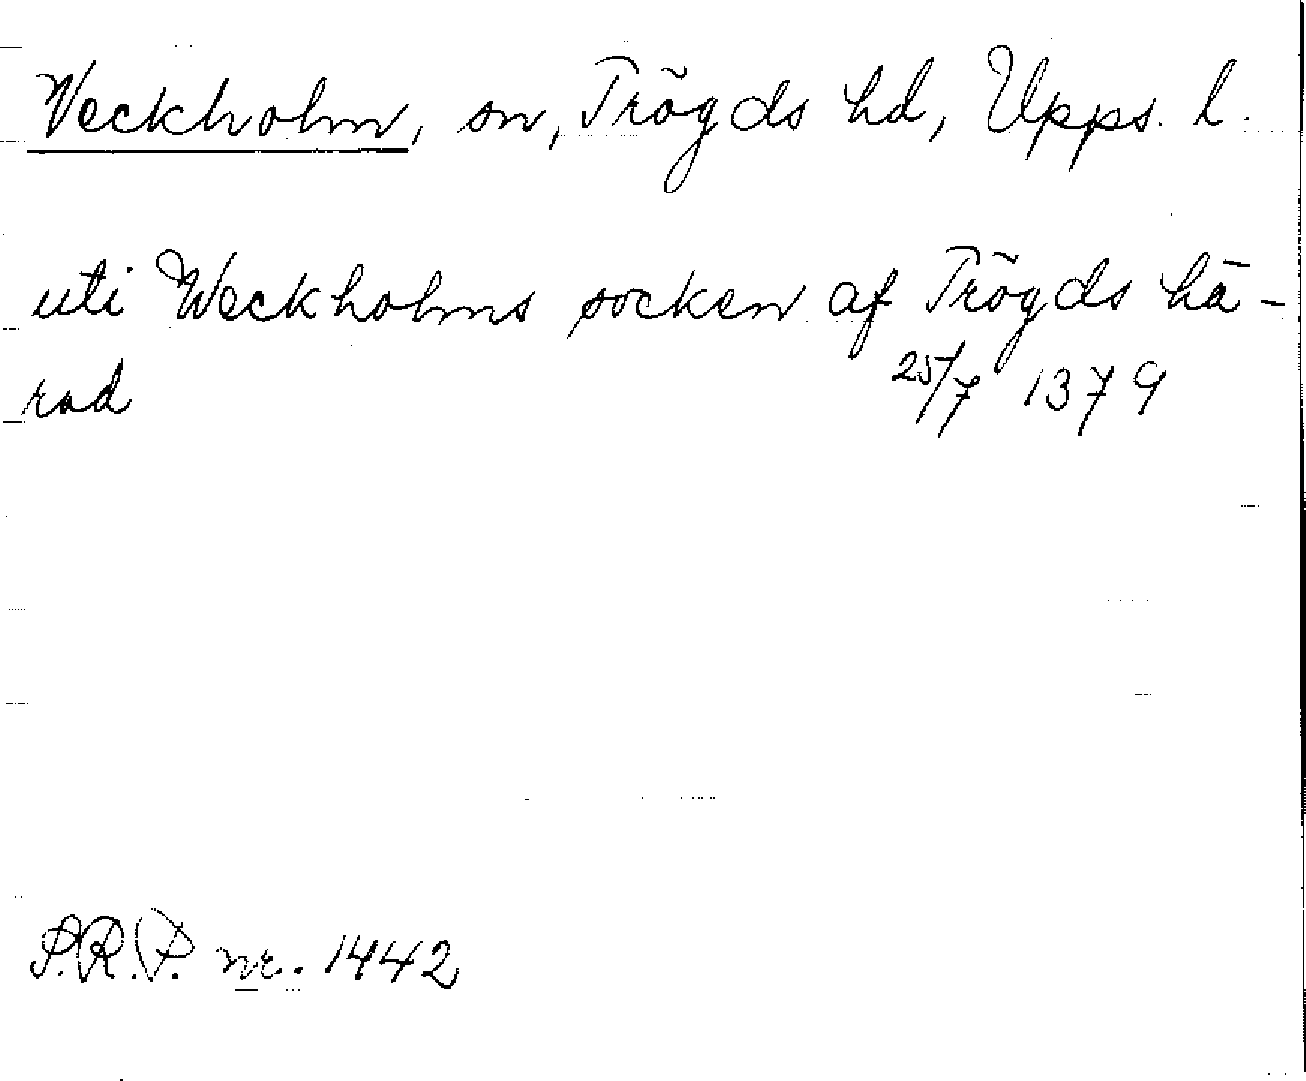 Veckholm, sn, Trögds hd, Upps. l.
uti Weckholms socken af Trögds hä-
rad 25/7 1379
S.R.P. nr. 1442